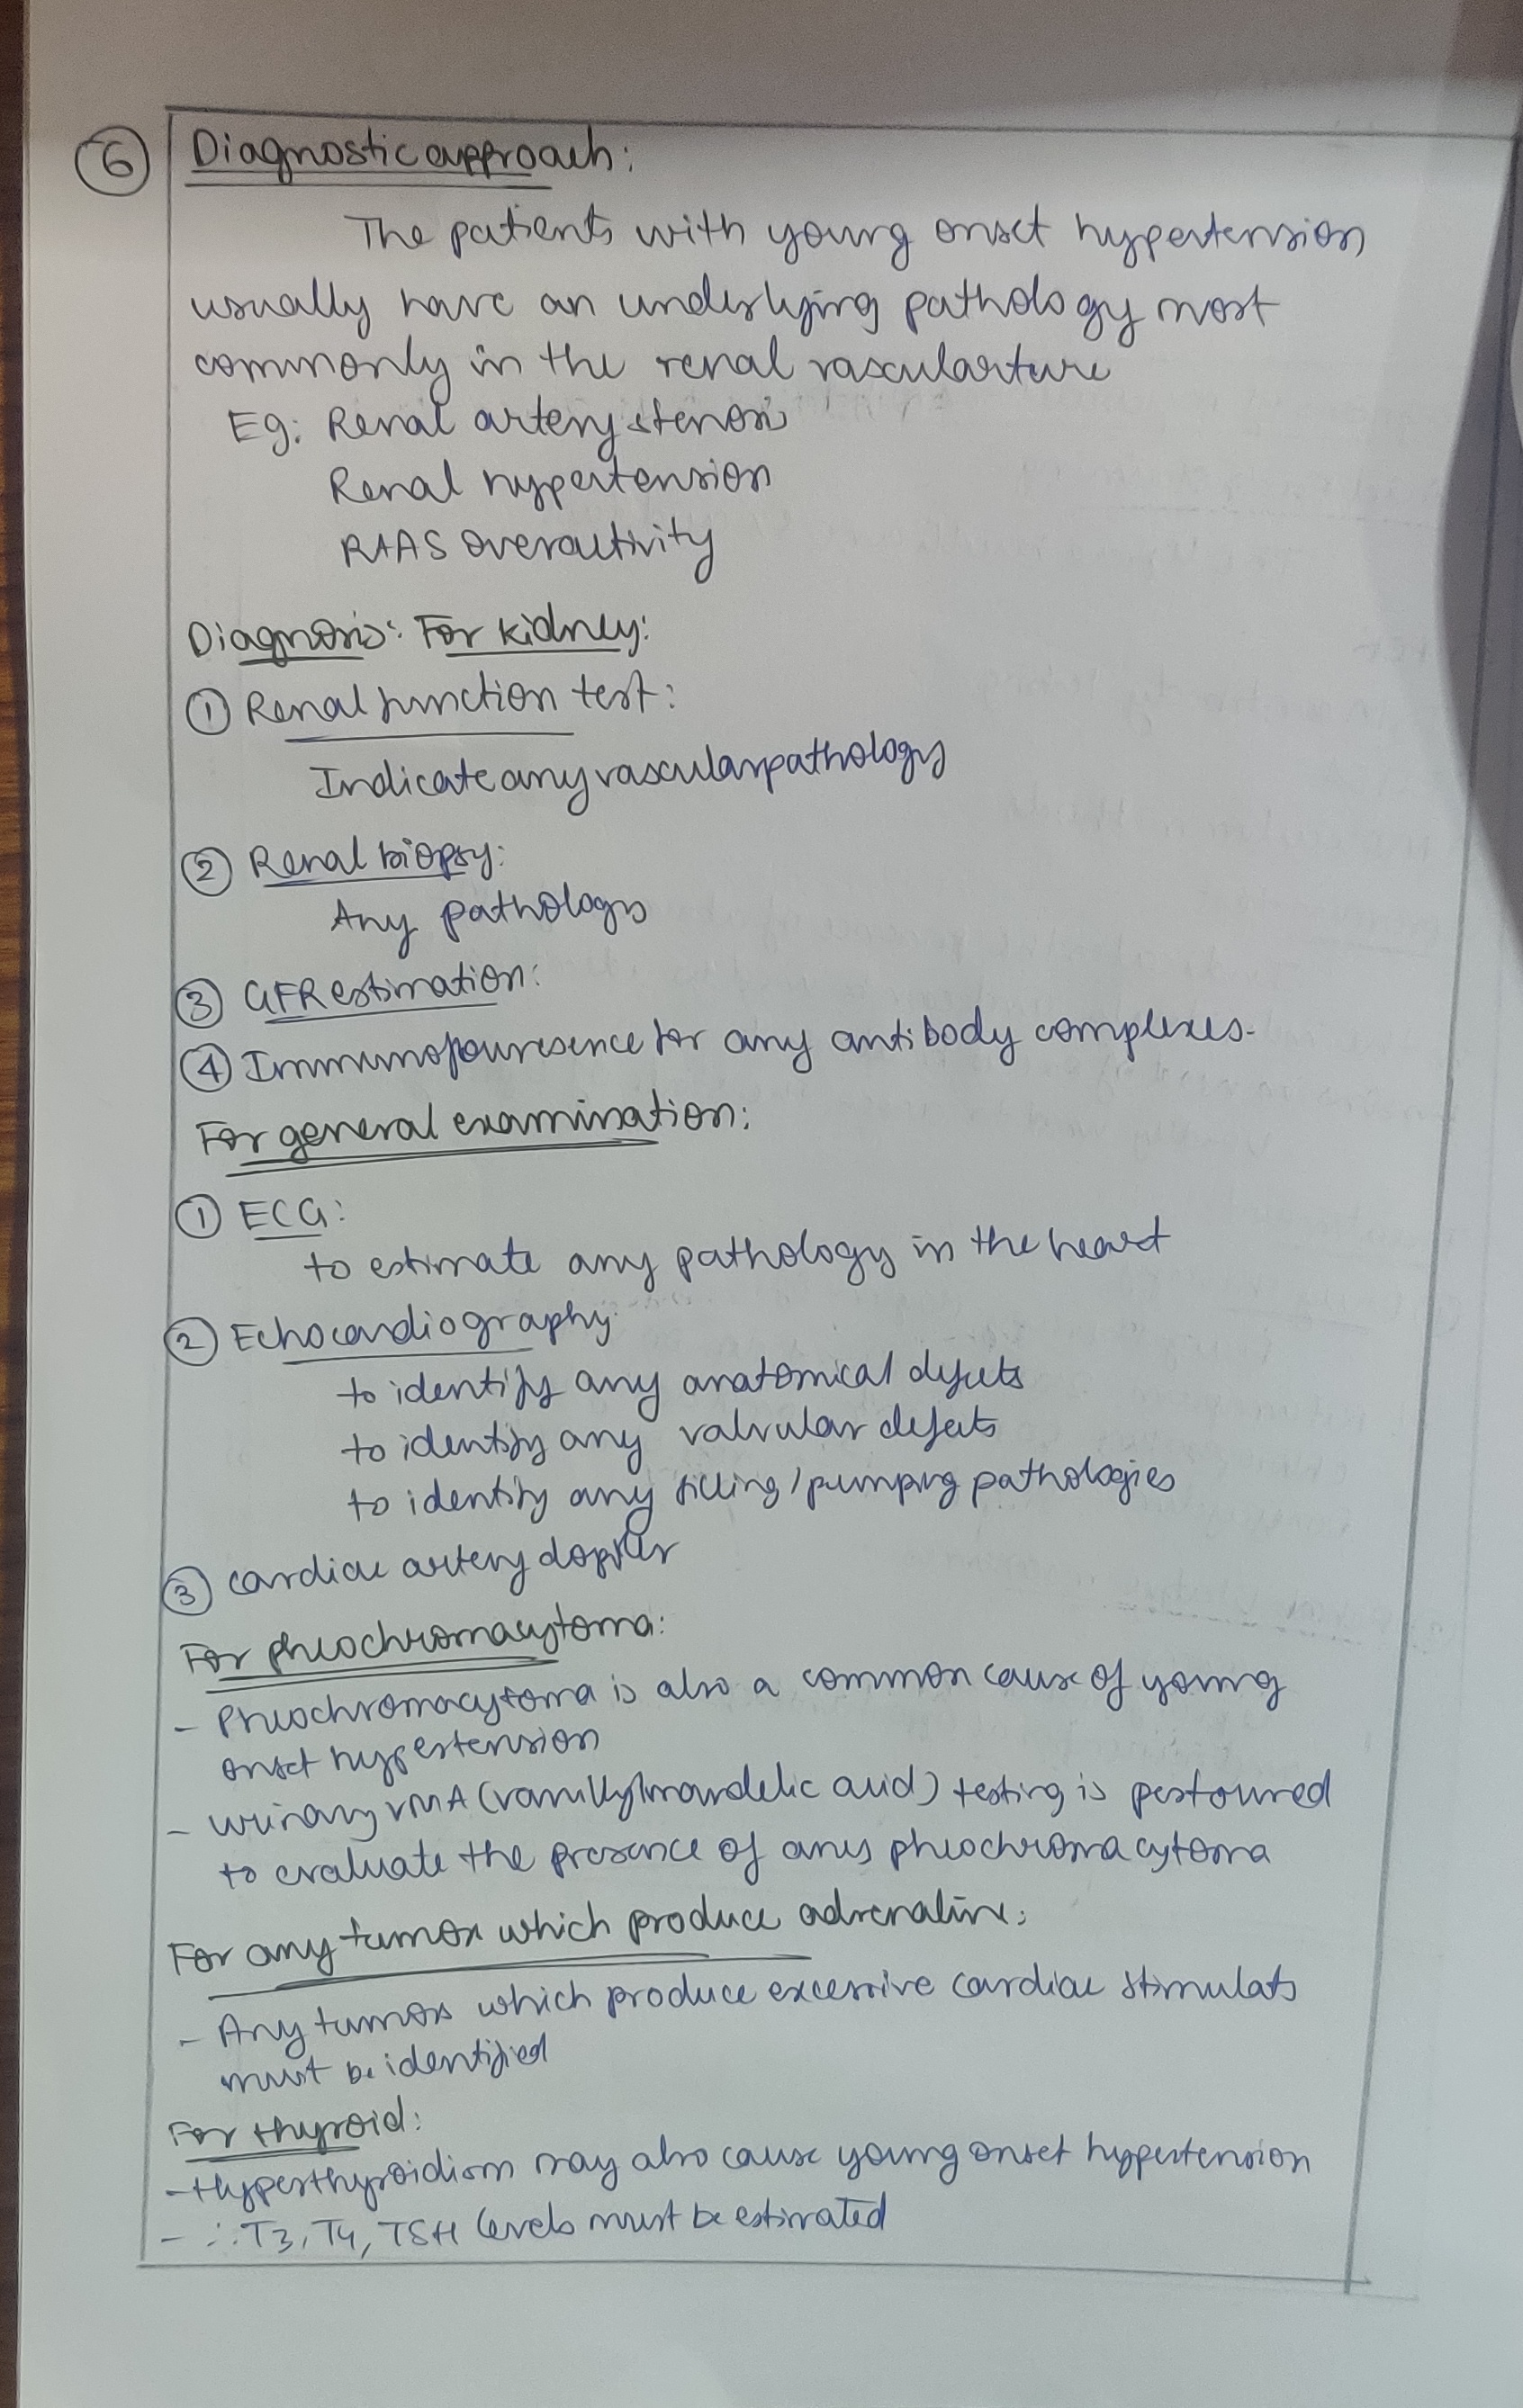 6 Diagnostic approach:
The patients with young onset hypertension
usually have an underlying pathology most
commonly in the renal vascularture
Eg: Renal artery stenosis
Renal hypertension
RAAS overactivity
Diagnosis: For kidney:
1 Renal function test:
Indicate any vascular pathology
2 Renal biopsy:
Any pathology
3 GFR estimation:
4 Immunoflouresence for any antibody complexes.
For general examination:
1 ECG:
to estimate any pathology in the heart
2 Echocardiography:
to identify any anatomical defects
to identify any valvular defects
to identify any filling/pumping pathologies
3 cardiac artery doppler
For pheochromacytoma:
- Pheochromacytoma is also a common cause of young
onset hypertension
- urinary VMA (vanillylmandelic acid) testing is
to evaluate the presence of any pheochromacytoma
For any tumor which produce adrenaline:
- Any tumors which produce excessive cardiac
must be identified
For thyroid:
- Hyperthyroidism may also cause young onset hypertension
- ∴ T3, T4, TSH levels must be estimated